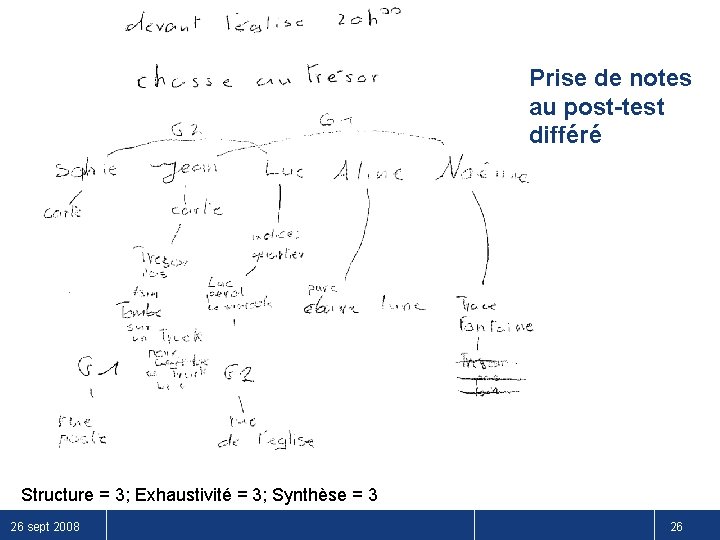 devant l'église 20h00
chasse au trésor
Prise de notes
au post-test
différé
G2 G1
Sophie Jean Luc Aline Noémie
carte carte
indice:
quartier
Tresor
pas
Luc
perd
parc
claire lune
Trace
fontaine
Tombe
sur
un Truck
pour
Tresor
pas
loin
G1 G2
rue
poste
rue
de l'église
Structure = 3; Exhaustivité = 3; Synthèse = 3
26 sept 2008 26